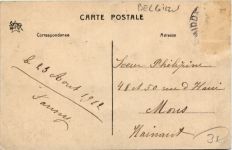 BELGIEN
CARTE POSTALE
Correspondance
Adresse
Le 23 Aout 1912
Soeur Philippine
48 et 50 rue d'Havré
Mons
Hainaut